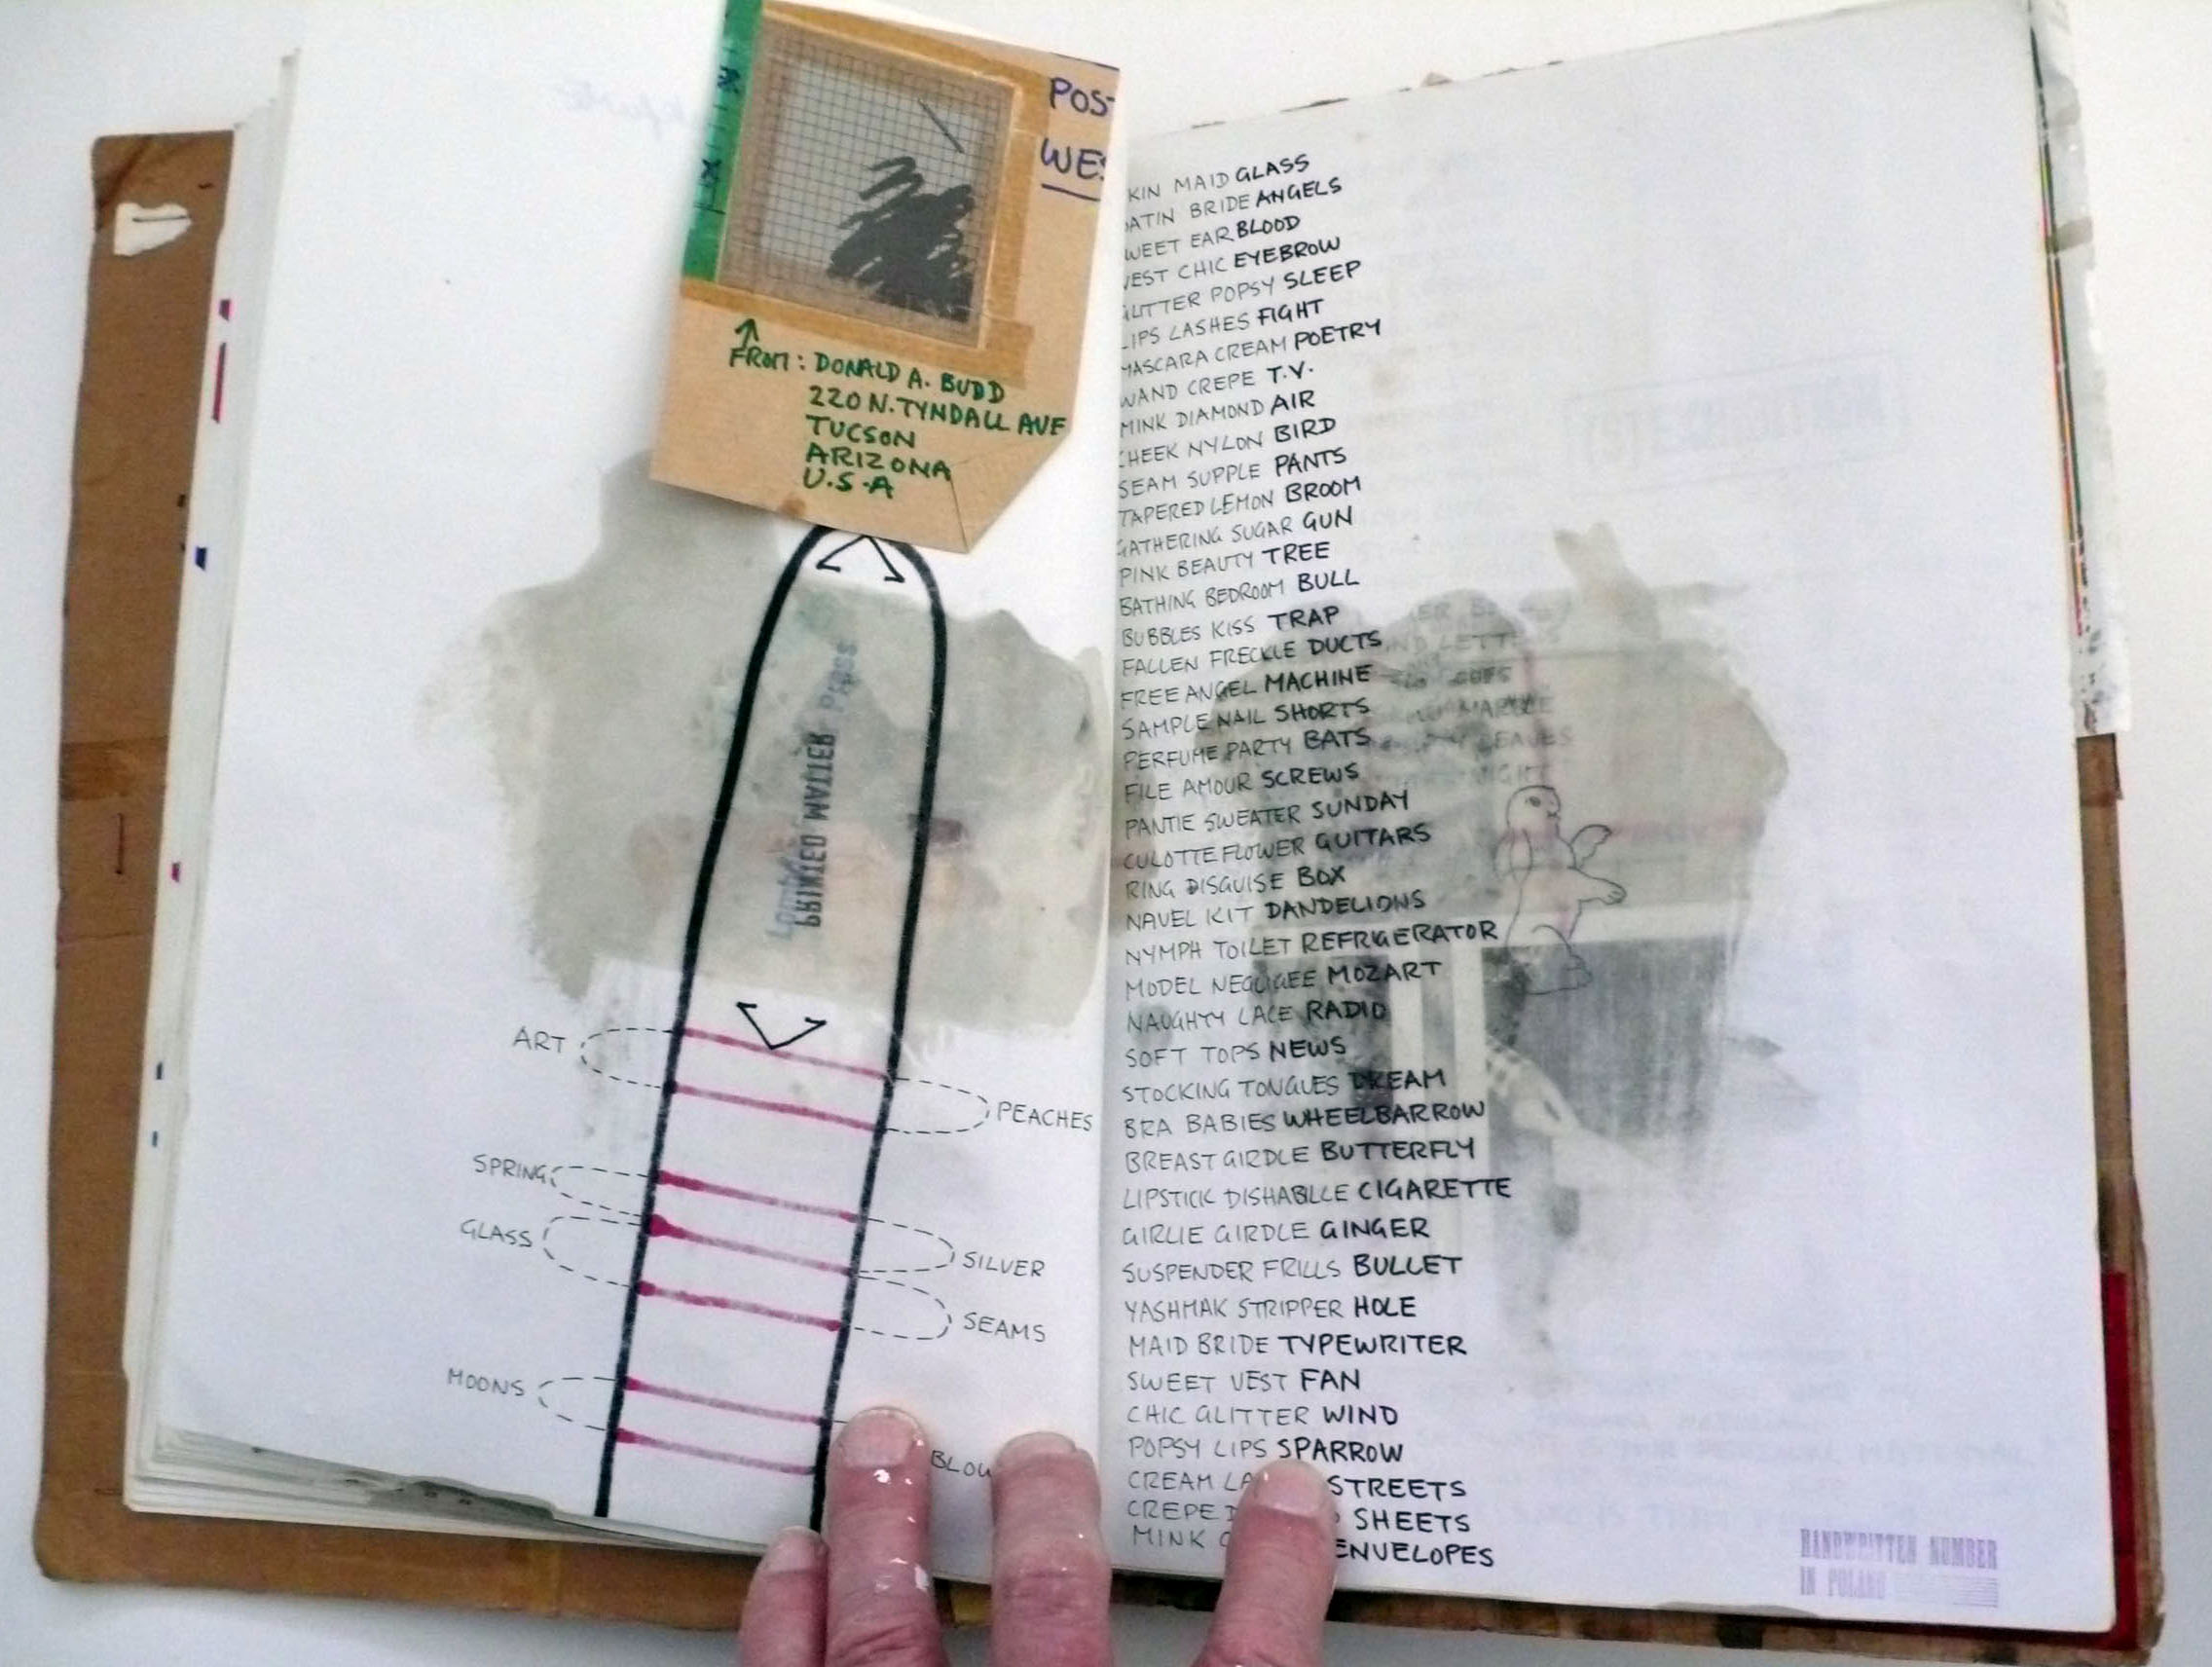 POS
WES
FROM: DONALD A. BUDD
220 N. TYNDALL AVE
TUCSON
ARIZONA
U.S.A
PRINTED MATTER
ART
PEACHES
SPRING
GLASS
SILVER
SEAMS
MOONS
BLOW
KIN MAID GLASS
ATIN BRIDE ANGELS
WEET EAR BLOOD
VEST CHIC EYEBROW
GLITTER POPSY SLEEP
LIPS LASHES FIGHT
MASCARA CREAM POETRY
WAND CREPE T.V.
MINK DIAMOND AIR
CHEEK NYLON BIRD
SEAM SUPPLE PANTS
TAPERED LEMON BROOM
GATHERING SUGAR GUN
PINK BEAUTY TREE
BATHING BEDROOM BULL
BUBBLES KISS TRAP
FALLEN FRECKLE DUCTS
FREE ANGEL MACHINE
SAMPLE NAIL SHORTS
PERFUME PARTY BATS
FILE AMOUR SCREWS
PANTIE SWEATER SUNDAY
CULOTTE FLOWER GUITARS
RING DISGUISE BOX
NAVEL KIT DANDELIONS
NYMPH TOILET REFRIGERATOR
MODEL NEGLIGEE MOZART
NAUGHTY LACE RADIO
SOFT TOPS NEWS
STOCKING TONGUES DREAM
BRA BABIES WHEELBARROW
BREAST GIRDLE BUTTERFLY
LIPSTICK DISHABILLE CIGARETTE
GIRLIE GIRDLE GINGER
SUSPENDER FRILLS BULLET
YASHMAK STRIPPER HOLE
MAID BRIDE TYPEWRITER
SWEET VEST FAN
CHIC GLITTER WIND
POPSY LIPS SPARROW
CREAM LA STREETS
CREPE D SHEETS
MINK ENVELOPES
HANDWRITTEN NUMBER
IN POLAND